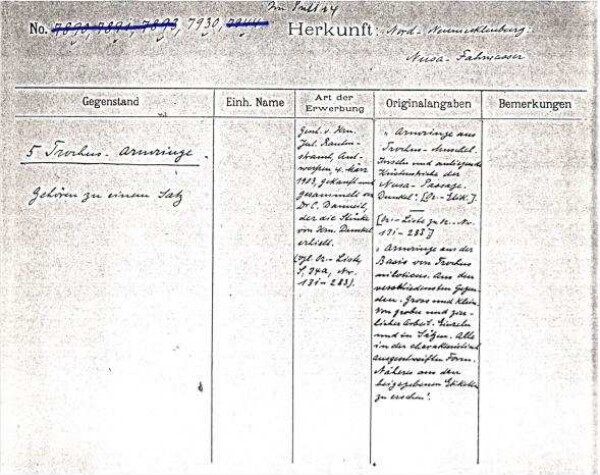 No. 7890-7891-7893, 7930, 7944
Herkunft: Nord-Neumecklenburg.
Nusa-Fahrwasser
Gegenstand
Einh. Name
Art der
Erwerbung
Originalangaben
Bemerkungen
5 Trochus-Armringe.
Gehören zu einem Satz
Gesch. v. Hrn.
werpen, 4. März
1913, gekauft und
gesammelt von
Dr. C. Danneil,
der die Stücke
von Hrn. Dunkel
erhielt.
(vgl. Or-Liste
S. 24a, No.
181-283).
"Armringe aus
Trochus-Muschel.
Inseln und anliegende
Küstenstriche der
Nusa-Passage.
Dunkel". [Or-Etik.]
[Or-Liste zu Or-No.
181-283]
"Armringe aus der
Basis von Trochus
niloticus. Aus den
verschiedensten Gegen-
den. Gross und klein.
Von grober und zier-
licher Arbeit. Einzeln
und in Sätzen. Alle
in der charakteristisch
ausgeschweiften Form.
Näheres aus den
beigegebenen Etiketten
zu ersehen".